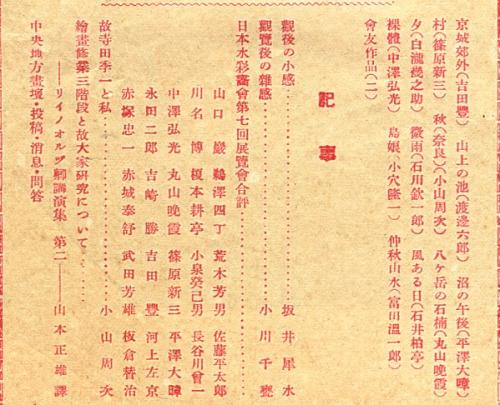 京城郊外(吉田豊) 山上の池(渡邊六郎) 沼の午後(平澤大暲)
村(篠原新三) 秋(奈良)(小山周次) 八ケ岳の石楠(丸山晩霞)
夕(白瀧幾之助) 微雨(石川欽一郎) 風ある日(石井柏亭)
裸體(中澤弘光) 島娘(小穴隆一) 仲秋山水(富田溫一郎)
會友作品(二)
記事
觀後の小感…………坂井犀水
觀覽後の雜感…………小川千甕
日本水彩畵會第七回展覽會合評…………
山口巖 鵜澤四丁 荒木芳男 佐藤平太郎
川名博 榎本耕亭 小泉癸己男 長谷川曾一
中澤弘光 丸山晩霞 篠原新三 平澤大暲
永田二郎 吉崎勝 吉田豊 河上左京
赤塚忠一 赤城泰舒 武田芳雄 板倉替治
故寺田季一と私…………小山周次
繪畫修業三階段と故大家研究について…………
――リイノオルヅ卿講演集 第二――山本正雄譯
中央地方畫壇・投稿・消息・問答